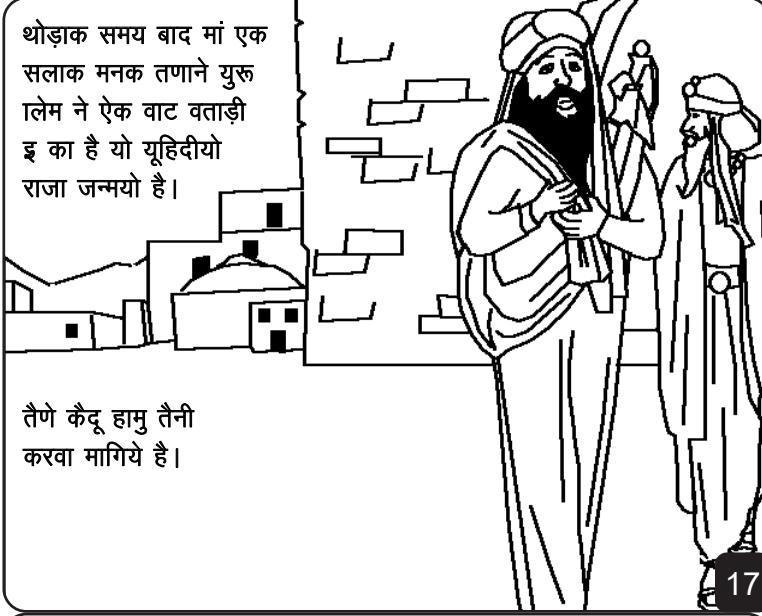 थोड़ाक समय बाद मां एक
सलाक मनक तणाने युरू
ालेम ने ऐक वाट वताड़ी
इ का है यो यूहिदीयो
राजा जन्मयो है।
तैणे कैदू हामु तैनी
करवा मागिये है।
17